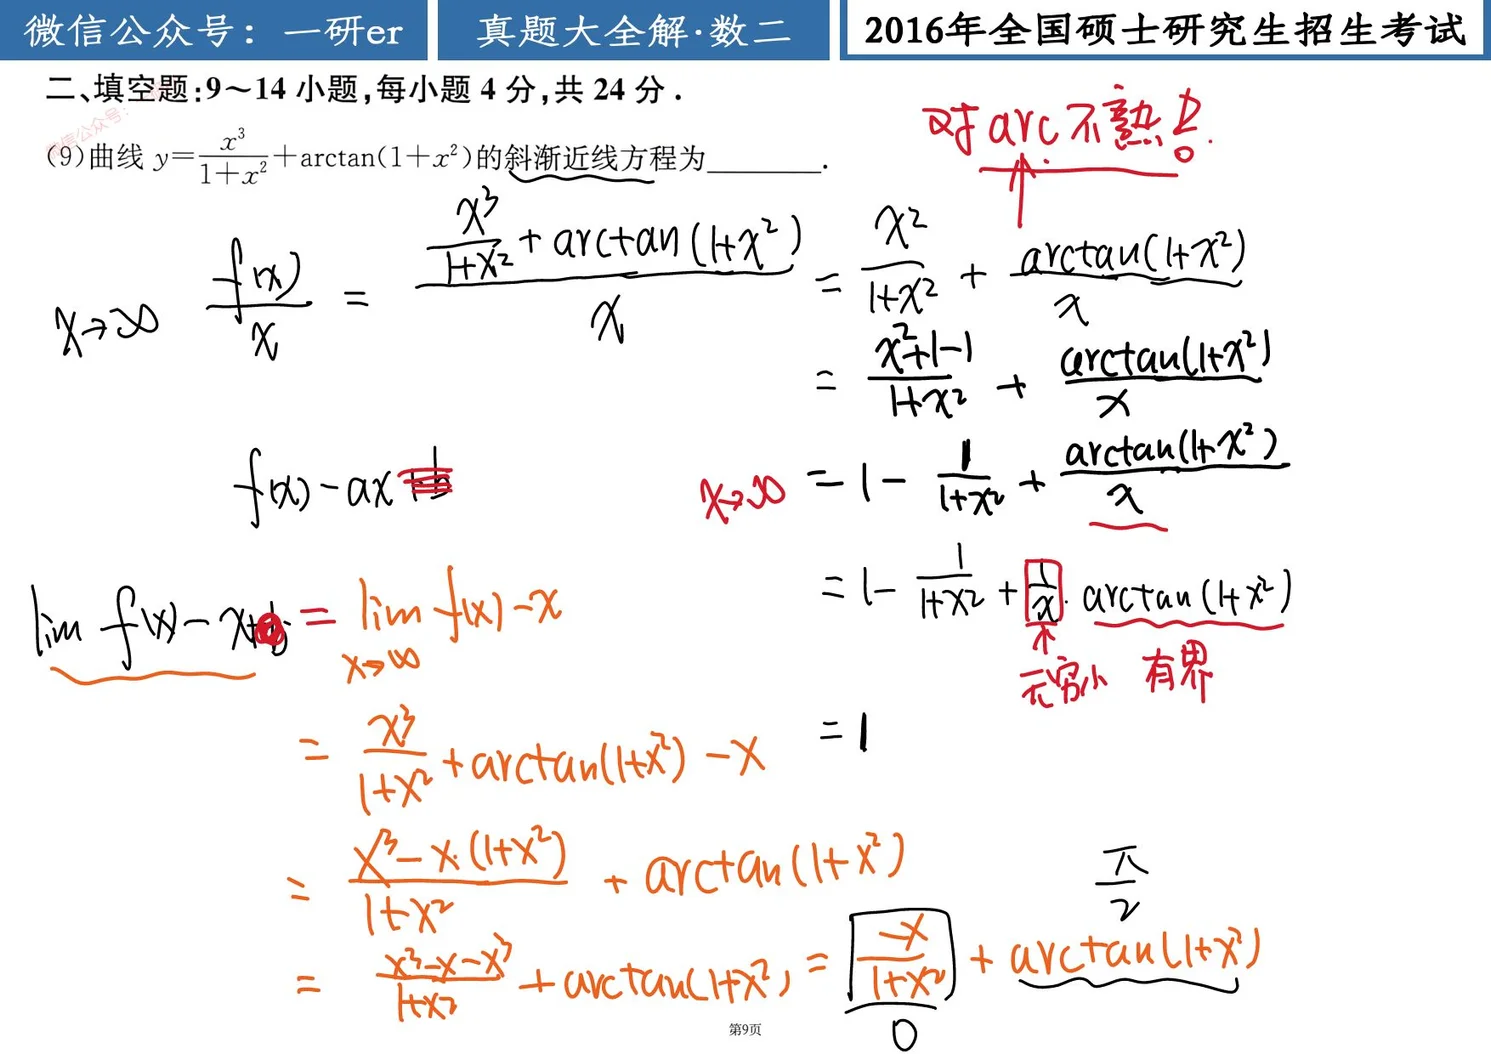 微信公众号：一研er 真题大全解·数二 2016年全国硕士研究生招生考试
二、填空题:9～14 小题,每小题 4 分,共 24 分.
对arc不熟!
(9)曲线 y=x³/(1+x²)+arctan(1+x²)的斜渐近线方程为________.
x→∞ f(x)/x = (x³/(1+x²) + arctan(1+x²))/x = x²/(1+x²) + arctan(1+x²)/x
= (x²+1-1)/(1+x²) + arctan(1+x²)/x
f(x)-ax
x→∞ = 1 - 1/(1+x²) + arctan(1+x²)/x
= 1 - 1/(1+x²) + 1/x · arctan(1+x²)
无穷小 有界
= 1
lim f(x)-x = lim f(x)-x
x→∞
= x³/(1+x²) + arctan(1+x²) - x
= (x³-x·(1+x²))/(1+x²) + arctan(1+x²)
π/2
= (x³-x-x³)/(1+x²) + arctan(1+x²) = -x/(1+x²) + arctan(1+x²)
0
第9页